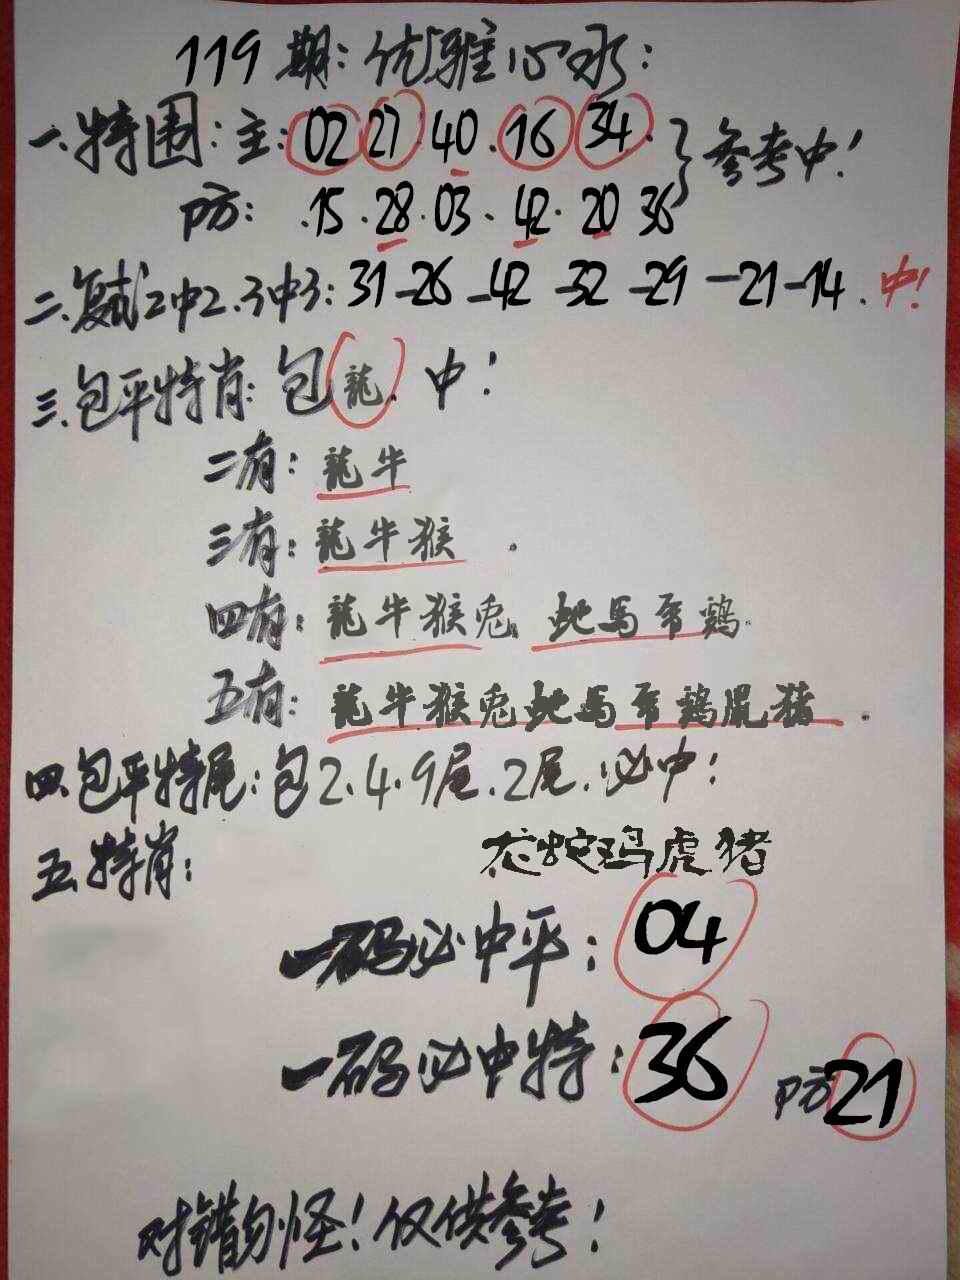 119期:优雅心水:
一.特围:主:02 27 40.16 34. 参考中!
防: .15.28.03.42.20 36
二.复试2中2.3中3:31-26-42-32-29-21-14.中!
三.包平特肖:包龍.中!
二有:龍牛
三有:龍牛猴.
四有:龍牛猴兎 蛇馬羊鶏
五有:龍牛猴兎蛇馬羊鶏鼠猪.
四.包平特尾:包2.4.9尾.2尾.必中!
五.特肖: 龙蛇玛虎猪
一码必中平:04
一码必中特:36 防21
对错勿怪!仅供参考!